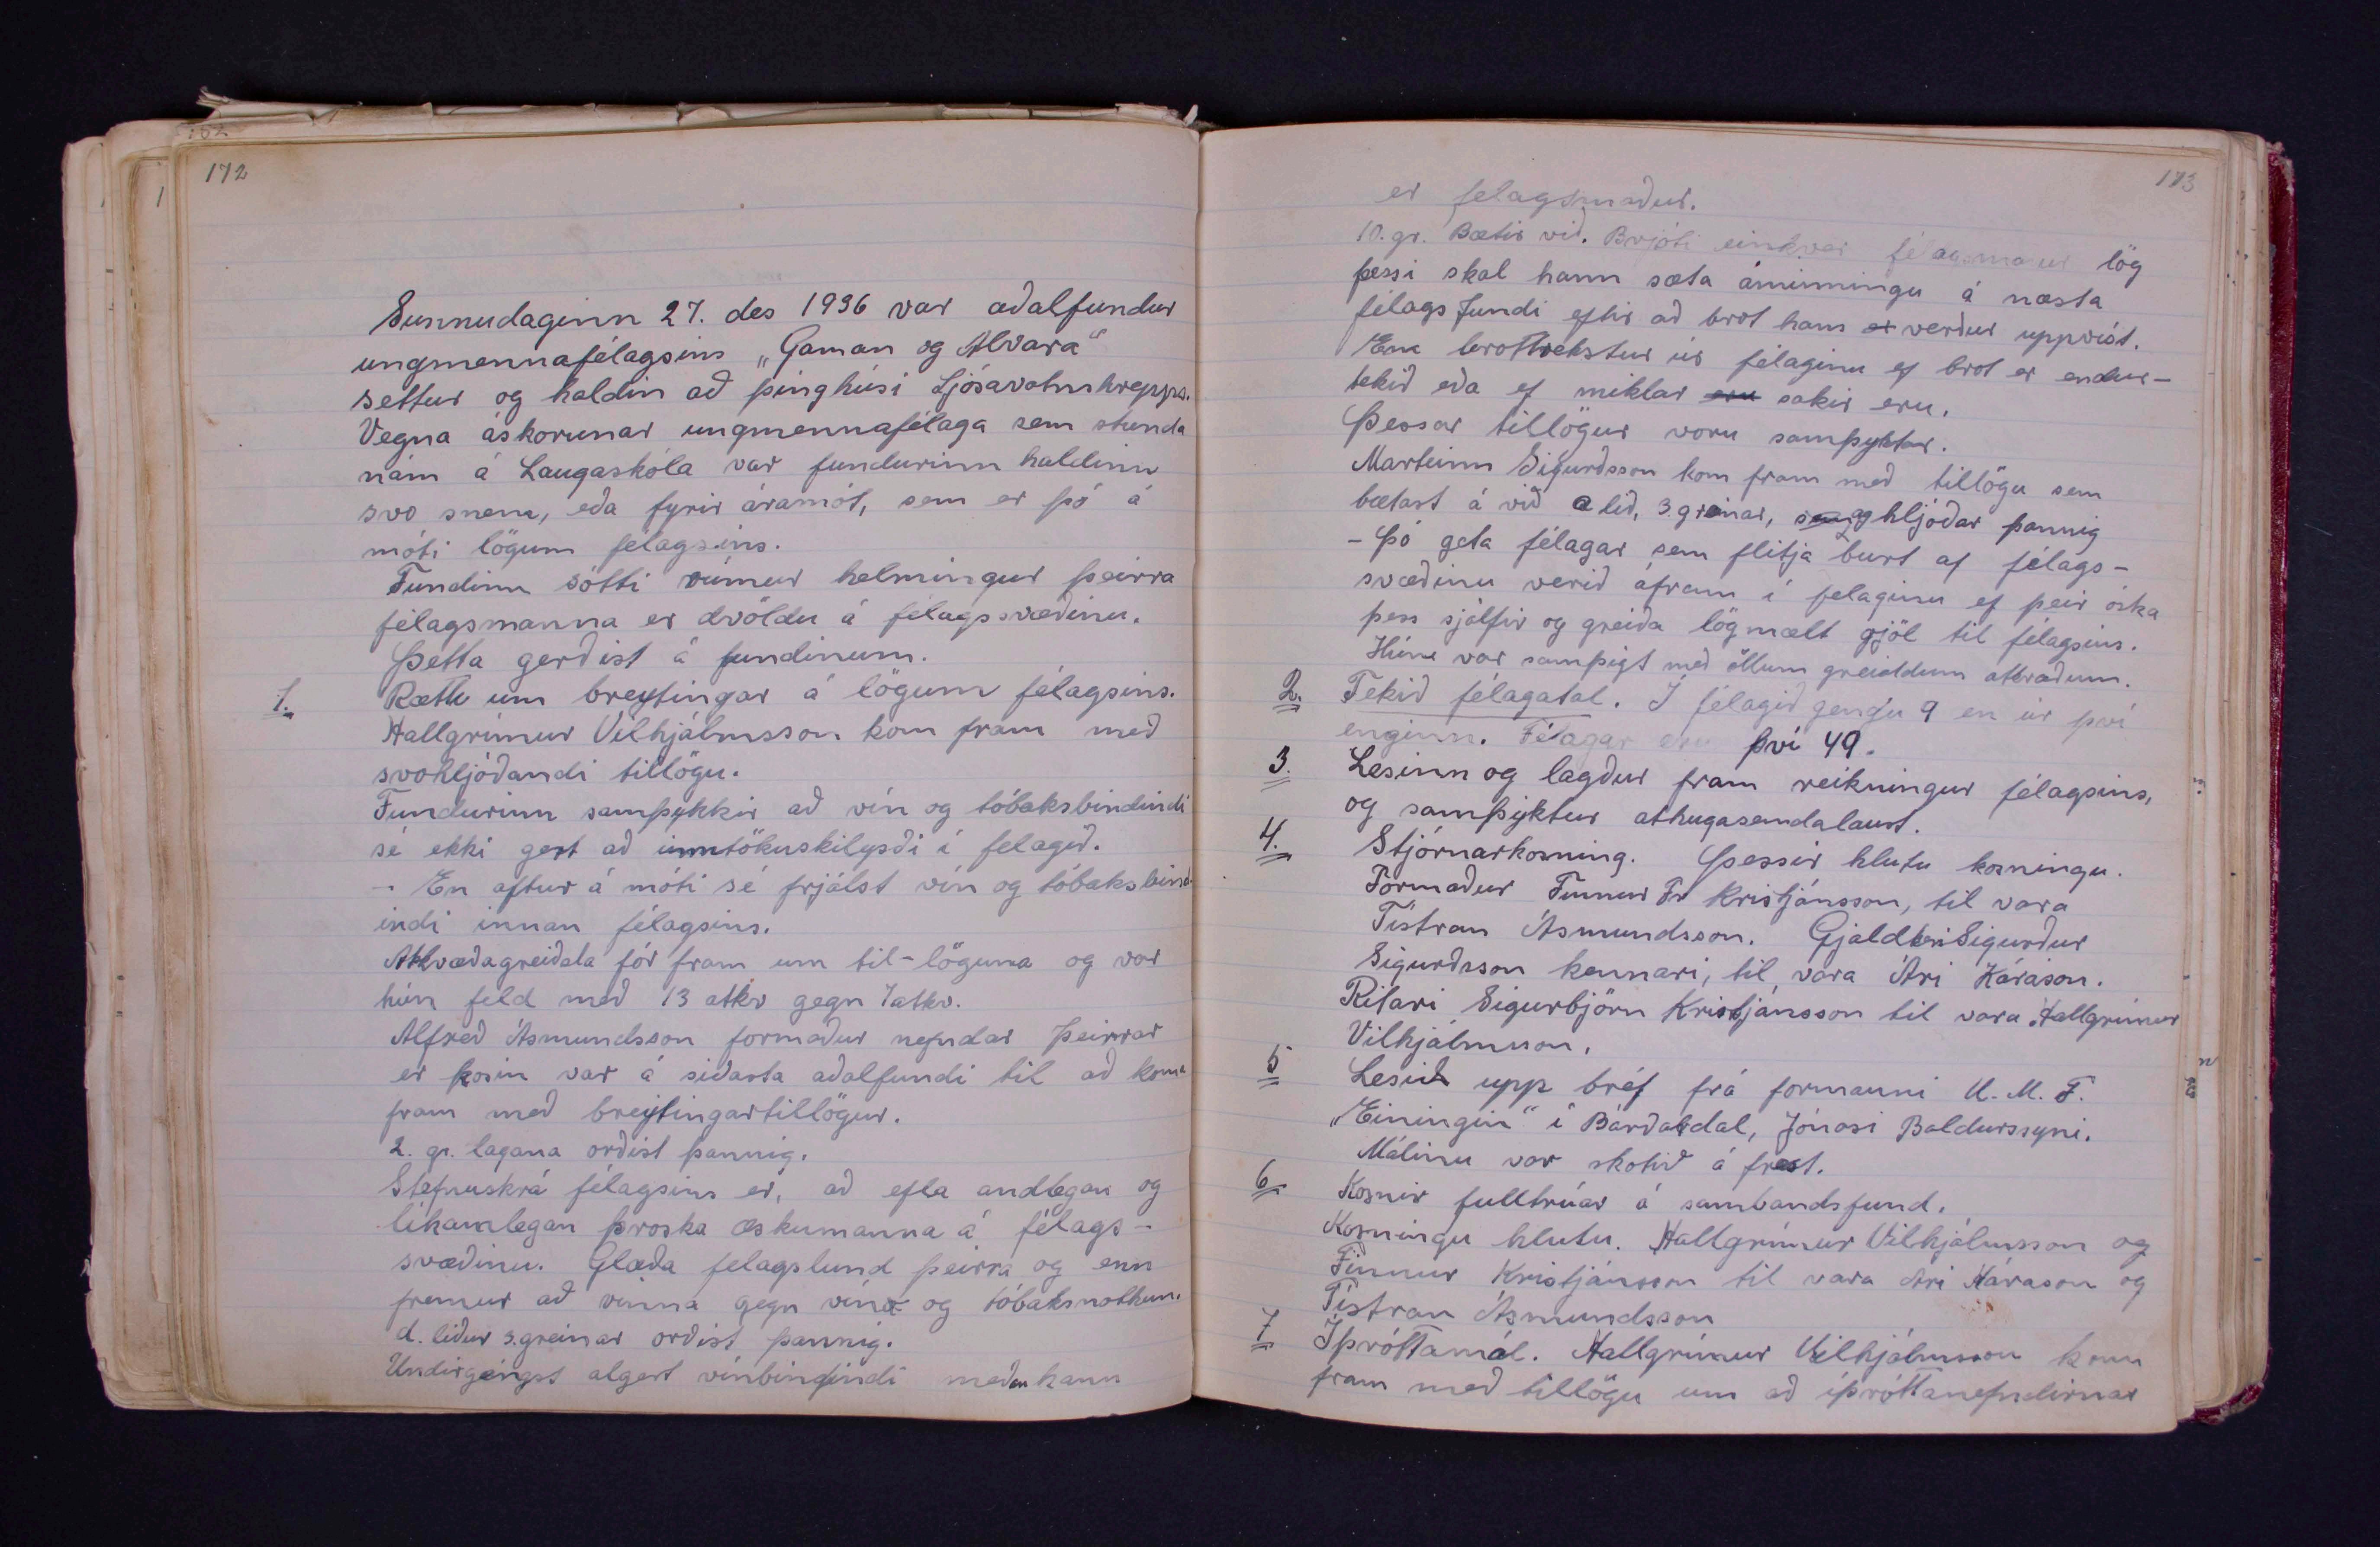 172
Sunnudaginn 27. des 1936 var aðalfundur
ungmennafélagsins „Gaman og Alvara“
settur og haldin að þinghúsi Ljósavatnshrepps.
Vegna áskorunar ungmennafélaga sem stunda
nám á Laugaskóla var fundurinn haldinn
svo snema, eða fyrir áramót, sem er þó á
móti lögum félagsins.
Fundinn sótti rúmur helmingur þeirra
félagsmanna er dvöldu á félagssvæðinu.
Þetta gerðist á fundinum.
1. Rætt um breytingar á lögum félagsins.
Hallgrímur Vilhjálmsson kom fram með
svohljóðandi tillögu.
Fundurinn samþykkir að vín og tóbaksbindindi
sé ekki gert að inntökuskilyrði í felagið.
- En aftur á móti sé frjálst vín og tóbaksbind-
indi innan félagsins.
Atkvæðagreiðsla fór fram um til-löguna og var
hún feld með 13 atkv gegn 7 atkv.
Alfreð Ásmundsson formaður nefndar þeirrar
er kosin var á síðasta aðalfundi til að koma
fram með breytingartillögur.
2. gr. lagana orðist þannig.
Stefnuskrá félagsins er, að efla andlegan og
líkamlegan þroska æskumanna á félags-
svæðinu. Glæða felagslund þeirra og enn
fremur að vinna gegn vína og tóbaksnotkun.
d. liður 3. greinar orðist þannig.
Undirgengst algert vínbindindi meðan hann
173
er félagsmaður.
10. gr. Bætir við. Brjóti einhver félagsmaður lög
þessi skal hann sæta áminningu á næsta
félagsfundi eftir að brot hans er verður uppvíst.
Enn brottrekstur úr félaginu ef brot er endur-
tekið eða ef miklar eru sakir eru.
Þessar tillögur voru samþyktar.
Marteinn Sigurðsson kom fram með tillögu sem
bætast á við a lið, 3. greinar, sem og hljóðar þannig
- Þó geta félagar sem flitja burt af félags-
svæðinu verið áfram í felaginu ef þeir óska
þess sjálfir og greiða lögmælt gjöl til félagsins.
Húnn var samþigt með öllum greiddum atkvæðum.
2. Tekið félagatal. Í félagið gengu 9 en úr því
enginn. Félagar eru því 49.
3. Lesinn og lagður fram reikningur félagsins,
og samþyktur athugasemdalaust.
4. Stjórnarkosning. Þessir hlutu kosningu.
Formaður Finnur Fr Kristjánsson, til vara
Tístran Ásmundsson. Gjaldkeri Sigurður
Sigurðsson kennari, til vara Ári Kárason.
Ritari Sigurbjörn Kristjánsson til vara Hallgrímur
Vilhjálmsson.
5 Lesið upp bréf frá formanni U. M. F.
„Einingin“ í Bárðardal, Jónasi Baldurssyni.
Málinu var skotið á frest.
6 Kosnir fulltrúar á sambandsfund.
Kosningu hlutu. Hallgrímur Vilhjálmsson og
Finnur Kristjánsson til vara Ari Kárason og
Tístran Ásmundsson
7 Íþróttamál. Hallgrímur Vilhjálmsson kom
fram með tillögu um að íþróttanefndirnar